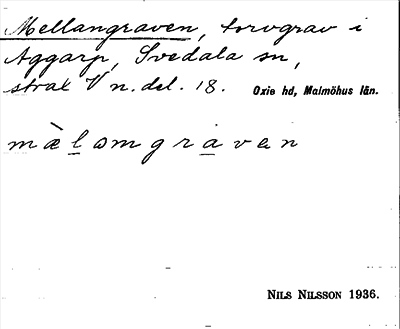 Mellangraven, torvgrav i
Aggarp, Svedala sn,
strax V n. del. 18. Oxie hd, Malmöhus län.
mæ̀lamgravan
NILS NILSSON 1936.